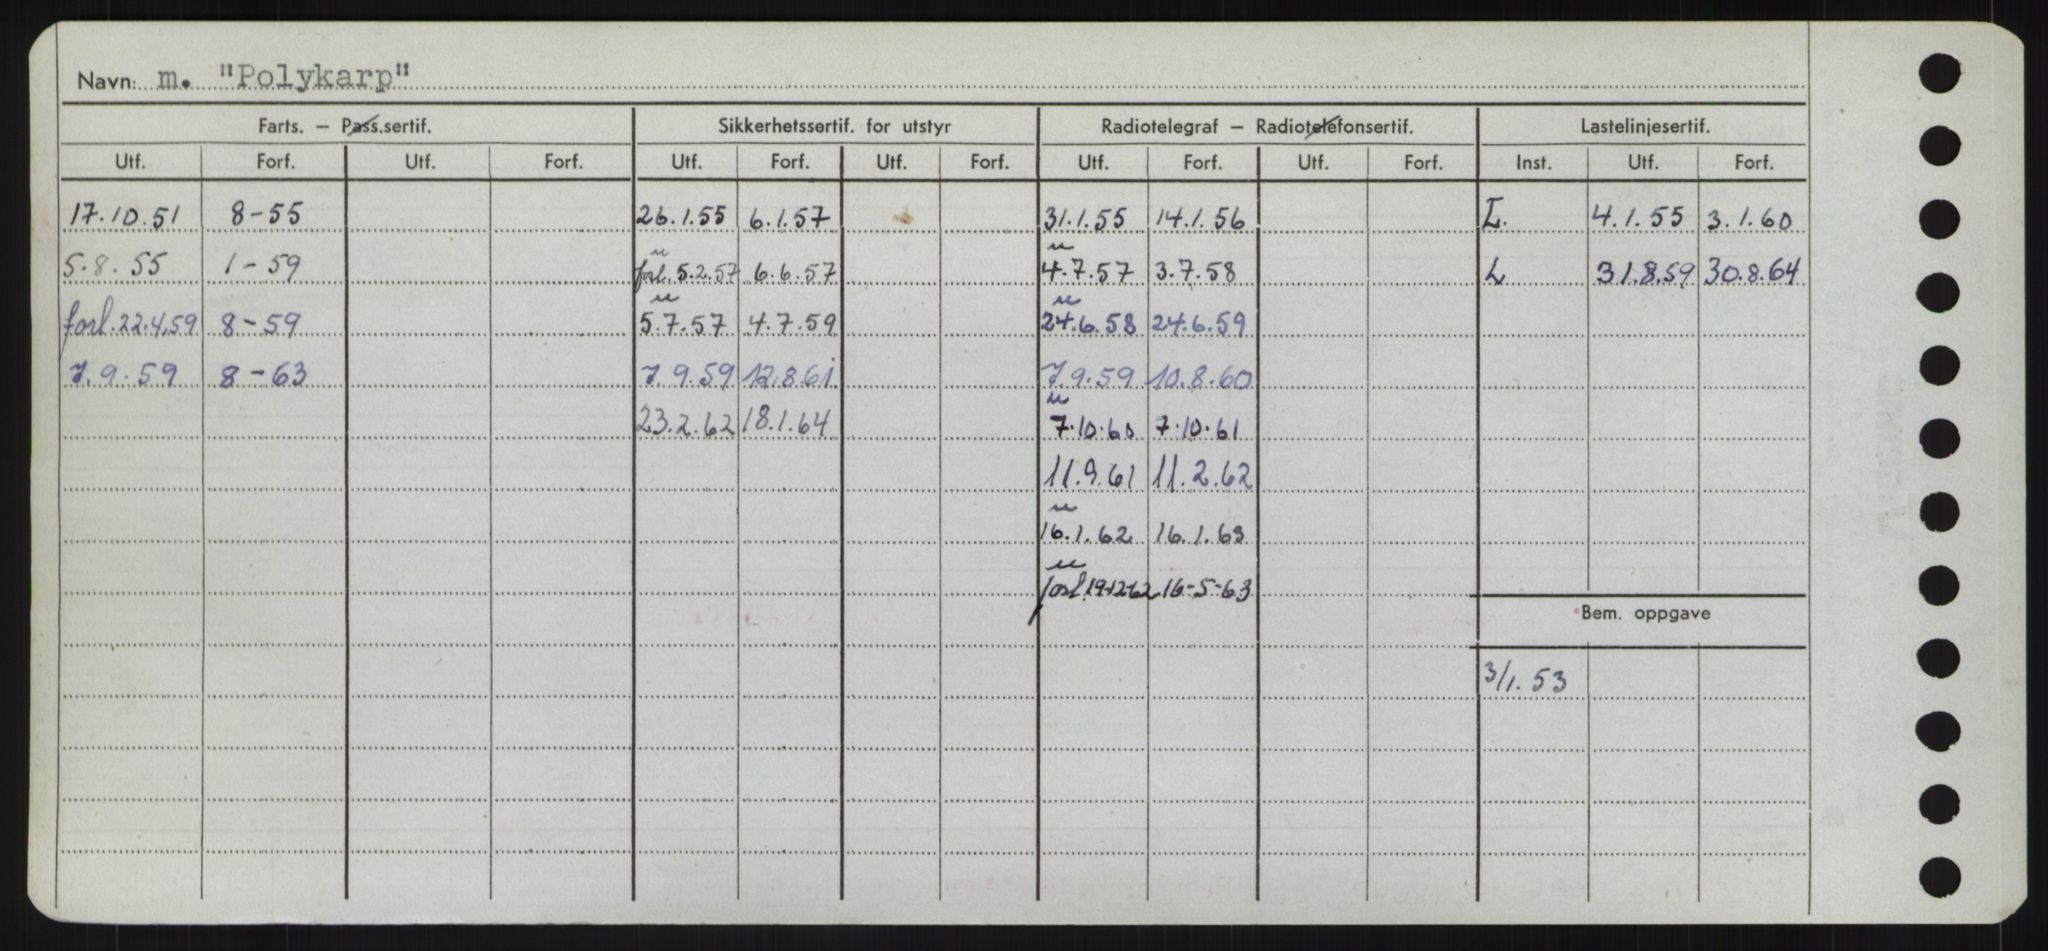 Navn: m. "Polykarp"
Farts. – Pass.sertif. Sikkerhetssertif. for utstyr Radiotelegraf – Radiotelefonsertif. Lastelinjesertif.
Utf. Forf. Utf. Forf. Utf. Forf. Utf. Forf. Utf. Forf. Utf. Forf. Inst. Utf. Forf.
17.10.51 8-55 26.1.55 6.1.57 31.1.55 14.1.56 L. 4.1.55 3.1.60
5.8.55 1-59 forl. 5.2.57 6.6.57 4.7.57 3.7.58 L 31.8.59 30.8.64
forl. 22.4.59 8-59 5.7.57 4.7.59 24.6.58 24.6.59
7.9.59 8-63 7.9.59 12.8.61 7.9.59 10.8.60
23.2.62 18.1.64 7.10.60 7.10.61
11.9.61 11.2.62
16.1.62 16.1.63
forl 19-12-62 16-5-63
Bem. oppgave
3/1.53